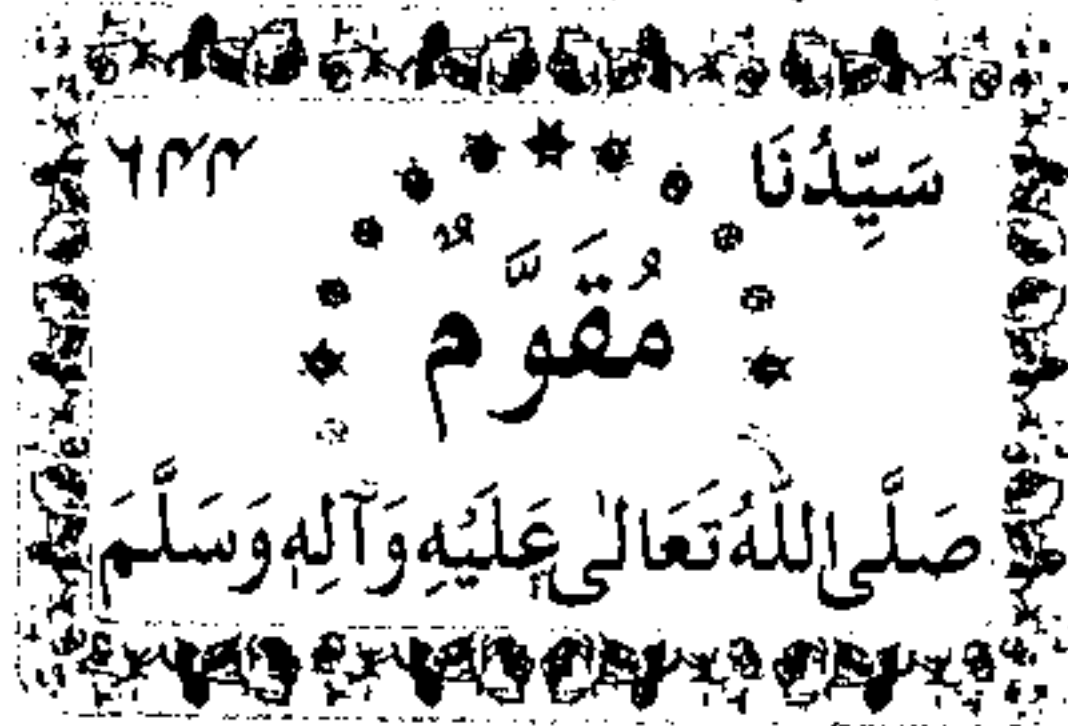 سَيِّدُنَا ۶۴۴
مُقَوَّمٌ
صَلَّى اللّٰهُ تَعَالٰى عَلَيْهِ وَآلِهٖ وَسَلَّمَ